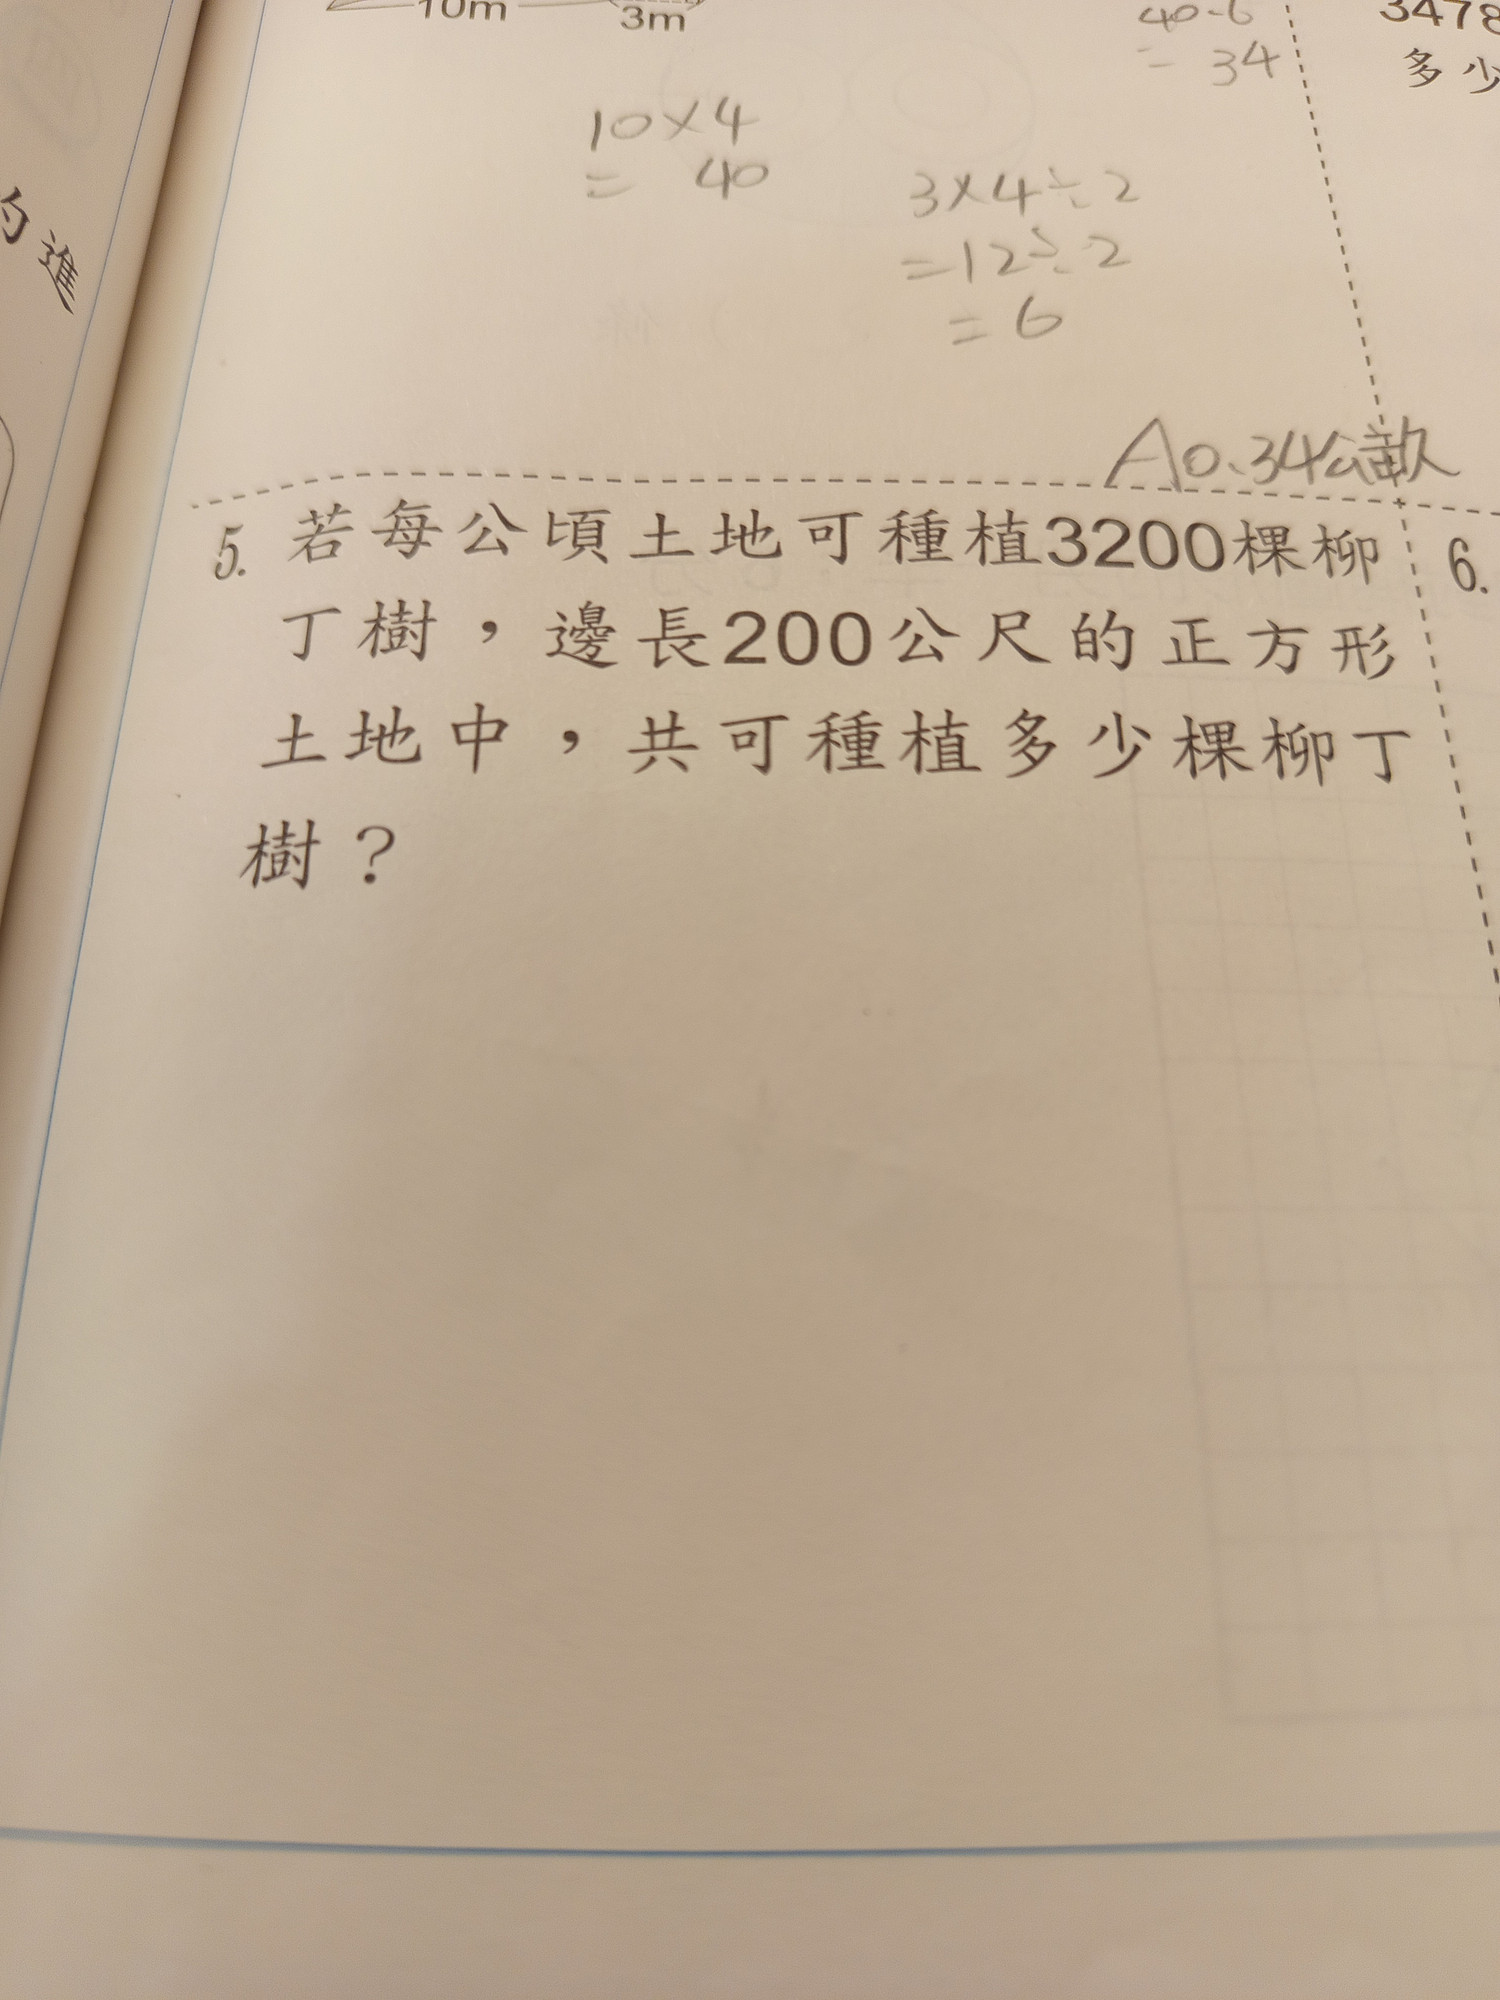 10m
3m
40-6
= 34
3478
多少
10×4
= 40
3×4÷2
=12÷2
= 6
的進
A0.34公畝
5. 若每公頃土地可種植3200棵柳
丁樹，邊長200公尺的正方形
土地中，共可種植多少棵柳丁
樹？
6.